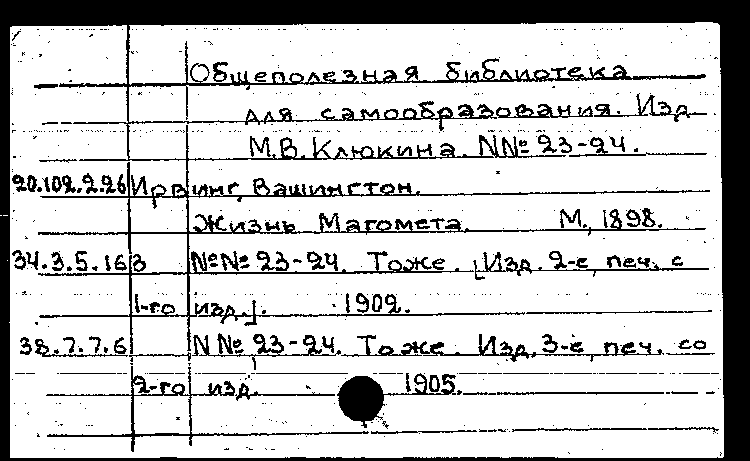 Общеполезная библиотека
для самообразования. Изд
М.В.Клюкина. NN№ 23-24.
20.102.2.26 Ирвинг, Вашингтон.
Жизнь Магомета. М., 1898.
34.3.5.163 №№ 23-24. Тоже. [Изд. 2-е, печ. с
1-го изд.]. 1902.
38.7.7.6 N№ 23-24. Тоже. Изд. 3-е, печ. со
2-го изд. 1905.